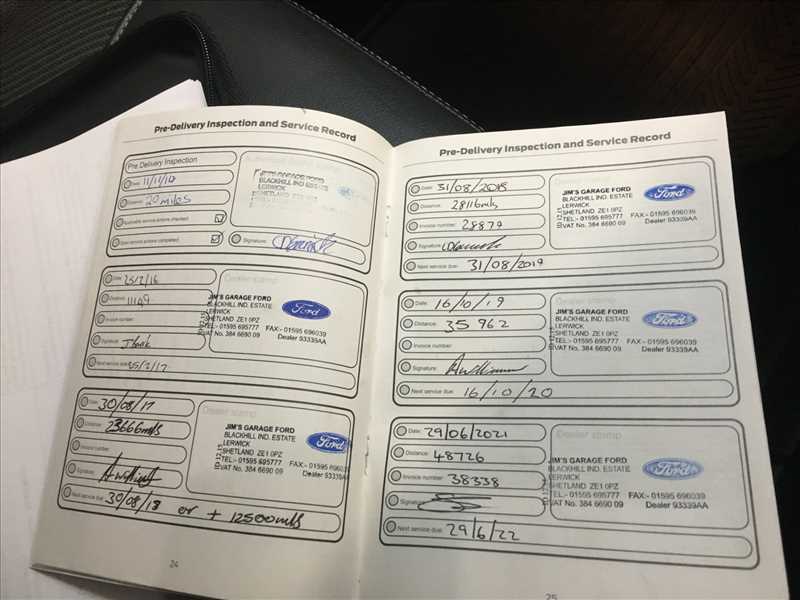 Pre-Delivery Inspection and Service Record
Pre Delivery Inspection
Date: 11/11/14
Distance: 20 miles
Applicable service actions checked
Open service actions completed
JIM'S GARAGE FORD
BLACKHILL IND ESTATE
LERWICK
SHETLAND ZE1 0PZ
Signature:
Date: 25/2/16
Distance: 11109
Invoice number:
Signature:
Next service due: 25/2/17
Dealer stamp
JIM'S GARAGE FORD
BLACKHILL IND. ESTATE
LERWICK
SHETLAND ZE1 0PZ
TEL:- 01595 695777 FAX:- 01595 696039
VAT No. 384 6690 09 Dealer 93339AA
Ford
Date: 30/08/17
Distance: 23666mls
Invoice number:
Signature:
Next service due: 30/08/18 or + 12500mls
Dealer stamp
JIM'S GARAGE FORD
BLACKHILL IND. ESTATE
LERWICK
SHETLAND ZE1 0PZ
TEL:- 01595 695777 FAX:- 01595 696039
VAT No. 384 6690 09 Dealer 93339AA
Ford
24
Pre-Delivery Inspection and Service Record
Date: 31/08/2018
Distance: 28116mls
Invoice number: 28879
Signature:
Next service due: 31/08/2019
JIM'S GARAGE FORD
BLACKHILL IND. ESTATE
LERWICK
SHETLAND ZE1 0PZ
TEL:- 01595 695777 FAX:- 01595 696039
VAT No. 384 6690 09 Dealer 93339AA
Ford
Date: 16/10/19
Distance: 35 962
Invoice number:
Signature:
Next service due: 16/10/20
JIM'S GARAGE FORD
BLACKHILL IND. ESTATE
LERWICK
SHETLAND ZE1 0PZ
TEL:- 01595 695777 FAX:- 01595 696039
VAT No. 384 6690 09 Dealer 93339AA
Ford
Date: 29/06/2021
Distance: 48726
Invoice number: 38338
Signature:
Next service due: 29/6/22
Dealer stamp
JIM'S GARAGE FORD
BLACKHILL IND. ESTATE
LERWICK
SHETLAND ZE1 0PZ
TEL:- 01595 695777 FAX:- 01595 696039
VAT No. 384 6690 09 Dealer 93339AA
Ford
25